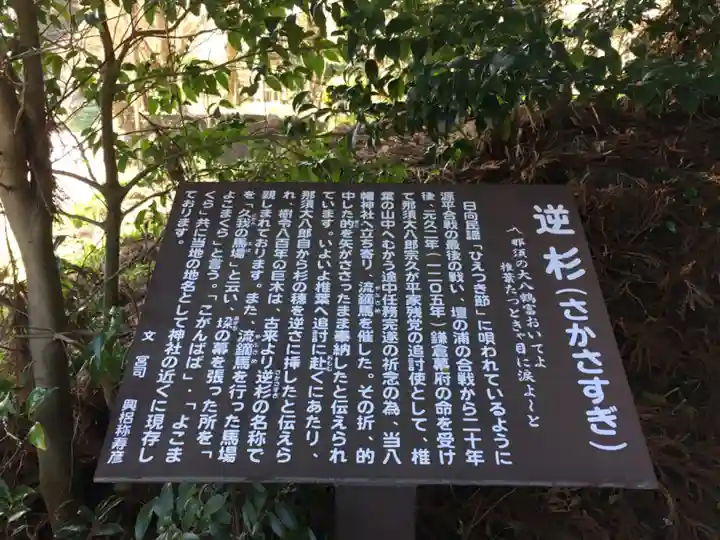 逆杉(さかさすぎ)
〽那須の大八鶴富おいてよ
椎葉たつときゃ目に涙よ〜と
日向民謡「ひえつき節」に唄われているように
源平合戦の最後の戦い、壇の浦の合戦から二十年
後、元久二年(一二〇五年)鎌倉幕府の命を受け
て那須大八郎宗久が平家残党の追討使として、椎
葉の山中へむかう途中任務完遂の祈念の為、当八
幡神社へ立ち寄り、流鏑馬を催した。その折、的
中した的を矢がささったまま奉納したと伝えられ
ています。いよいよ椎葉へ追討に赴くにあたり、
那須大八郎自から杉の穂を逆さに挿したと伝えら
れ、樹令八百年の巨木は、古来より逆杉の名称で
親しまれております。また、流鏑馬を行った馬場
を「久我の馬場」と云い、垜の幕を張った所を「
よこまくら」と言う。「こがんばば」・「よこま
くら」共に当地の地名として神社の近くに現存し
ております。
文 宮司 興梠称寿彦